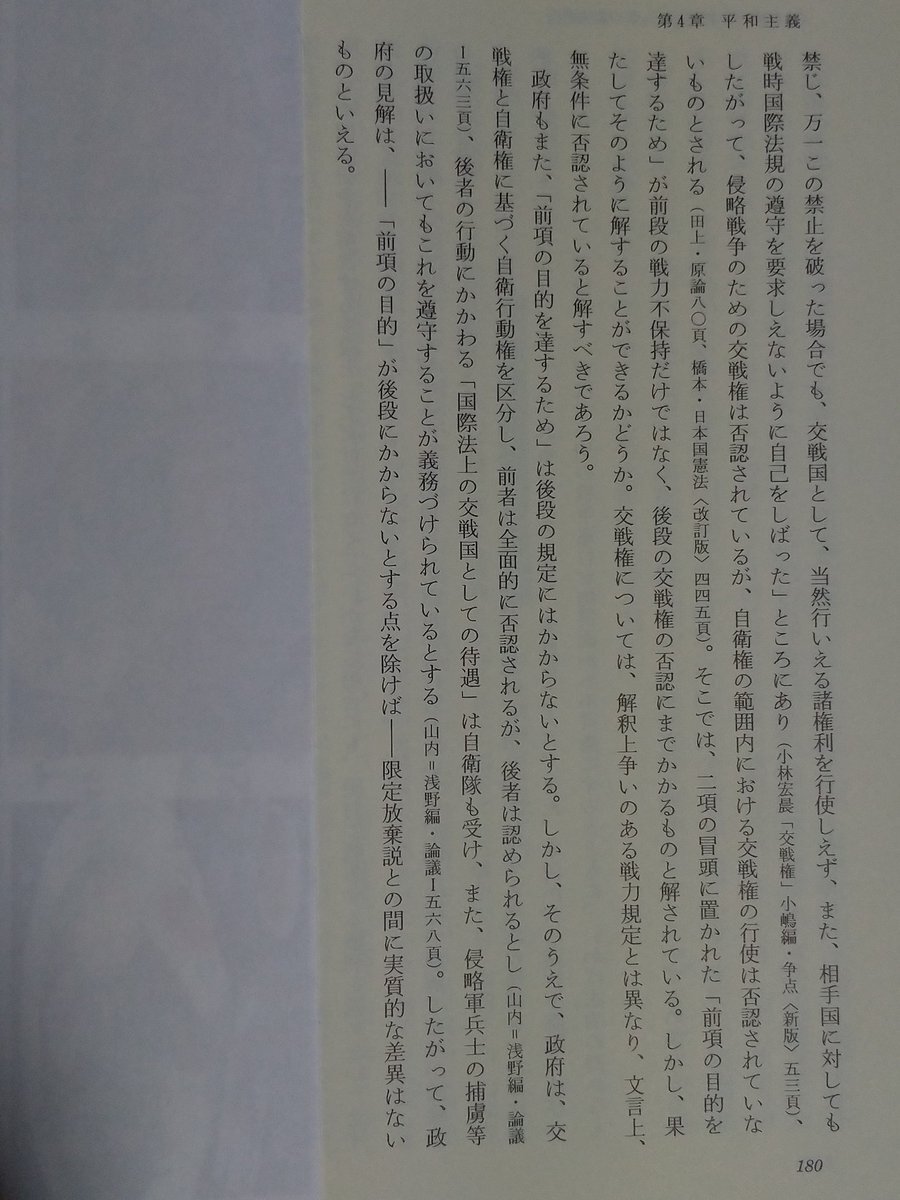 第4章 平和主義
禁じ、万一この禁止を破った場合でも、交戦国として、当然行いえる諸権利を行使しえず、また、相手国に対しても
戦時国際法規の遵守を要求しえないように自己をしばった」ところにあり（小林宏晨「交戦権」小嶋編・争点〈新版〉五三頁）、
したがって、侵略戦争のための交戦権は否認されているが、自衛権の範囲内における交戦権の行使は否認されていな
いものとされる（田上・原論八〇頁、橋本・日本国憲法〈改訂版〉四四五頁）。そこでは、二項の冒頭に置かれた「前項の目的を
達するため」が前段の戦力不保持だけではなく、後段の交戦権の否認にまでかかるものと解されている。しかし、果
たしてそのように解することができるかどうか。交戦権については、解釈上争いのある戦力規定とは異なり、文言上、
無条件に否認されていると解すべきであろう。
政府もまた、「前項の目的を達するため」は後段の規定にはかからないとする。しかし、そのうえで、政府は、交
戦権と自衛権に基づく自衛行動権を区分し、前者は全面的に否認されるが、後者は認められるとし（山内＝浅野編・論議
Ⅰ五六三頁）、後者の行動にかかわる「国際法上の交戦国としての待遇」は自衛隊も受け、また、侵略軍兵士の捕虜等
の取扱いにおいてもこれを遵守することが義務づけられているとする（山内＝浅野編・論議Ⅰ五六八頁）。したがって、政
府の見解は、――「前項の目的」が後段にかからないとする点を除けば――限定放棄説との間に実質的な差異はない
ものといえる。
180